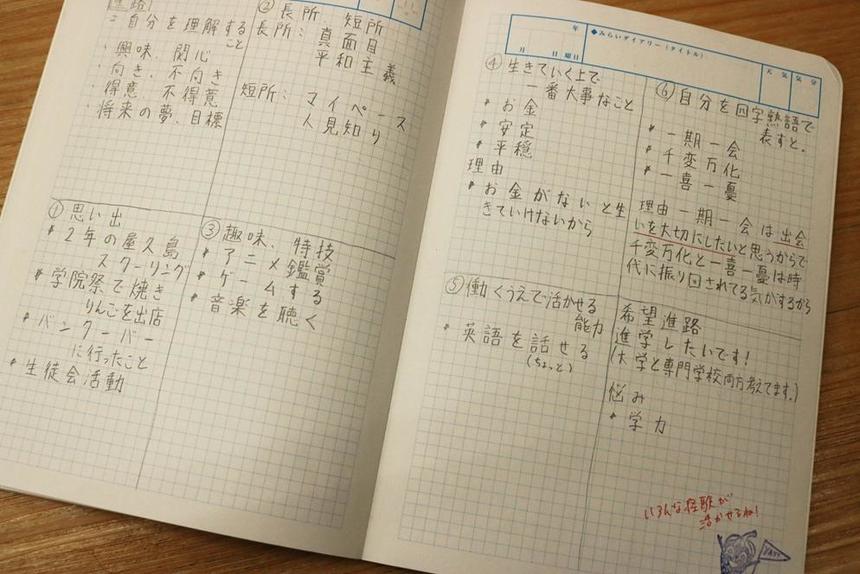 進路
=自分を理解する
こと
・興味、関心
・向き、不向き
・得意 不得意
・将来の夢、目標
② 長所 短所
長所: 真面目
平和主義
短所: マイペース
人見知り
① 思い出
・2年の屋久島
スクーリング
・学院祭で焼き
りんごを出店
・バンクーバー
に行ったこと
・生徒会活動
③ 趣味、特技
・アニメ鑑賞
・ゲームする
・音楽を聴く
年
月 日 曜日
◆みらいダイアリー(タイトル)
天気 気分
④ 生きていく上で
一番大事なこと
・お金
・安定
・平穏
理由
・お金がないと生
きていけないから
⑥ 自分を四字熟語で
表すと。
・一期一会
・千変万化
・一喜一憂
理由 一期一会は出会
いを大切にしたいと思うからで
千変万化と一喜一憂は時
代に振り回されてる気がするから
⑤ 働くうえで活かせる
能力
・英語を話せる
(ちょっと)
希望進路
進学したいです!
(大学と専門学校両方考えてます。)
悩み
・学力
いろんな経験が
活かせるね!